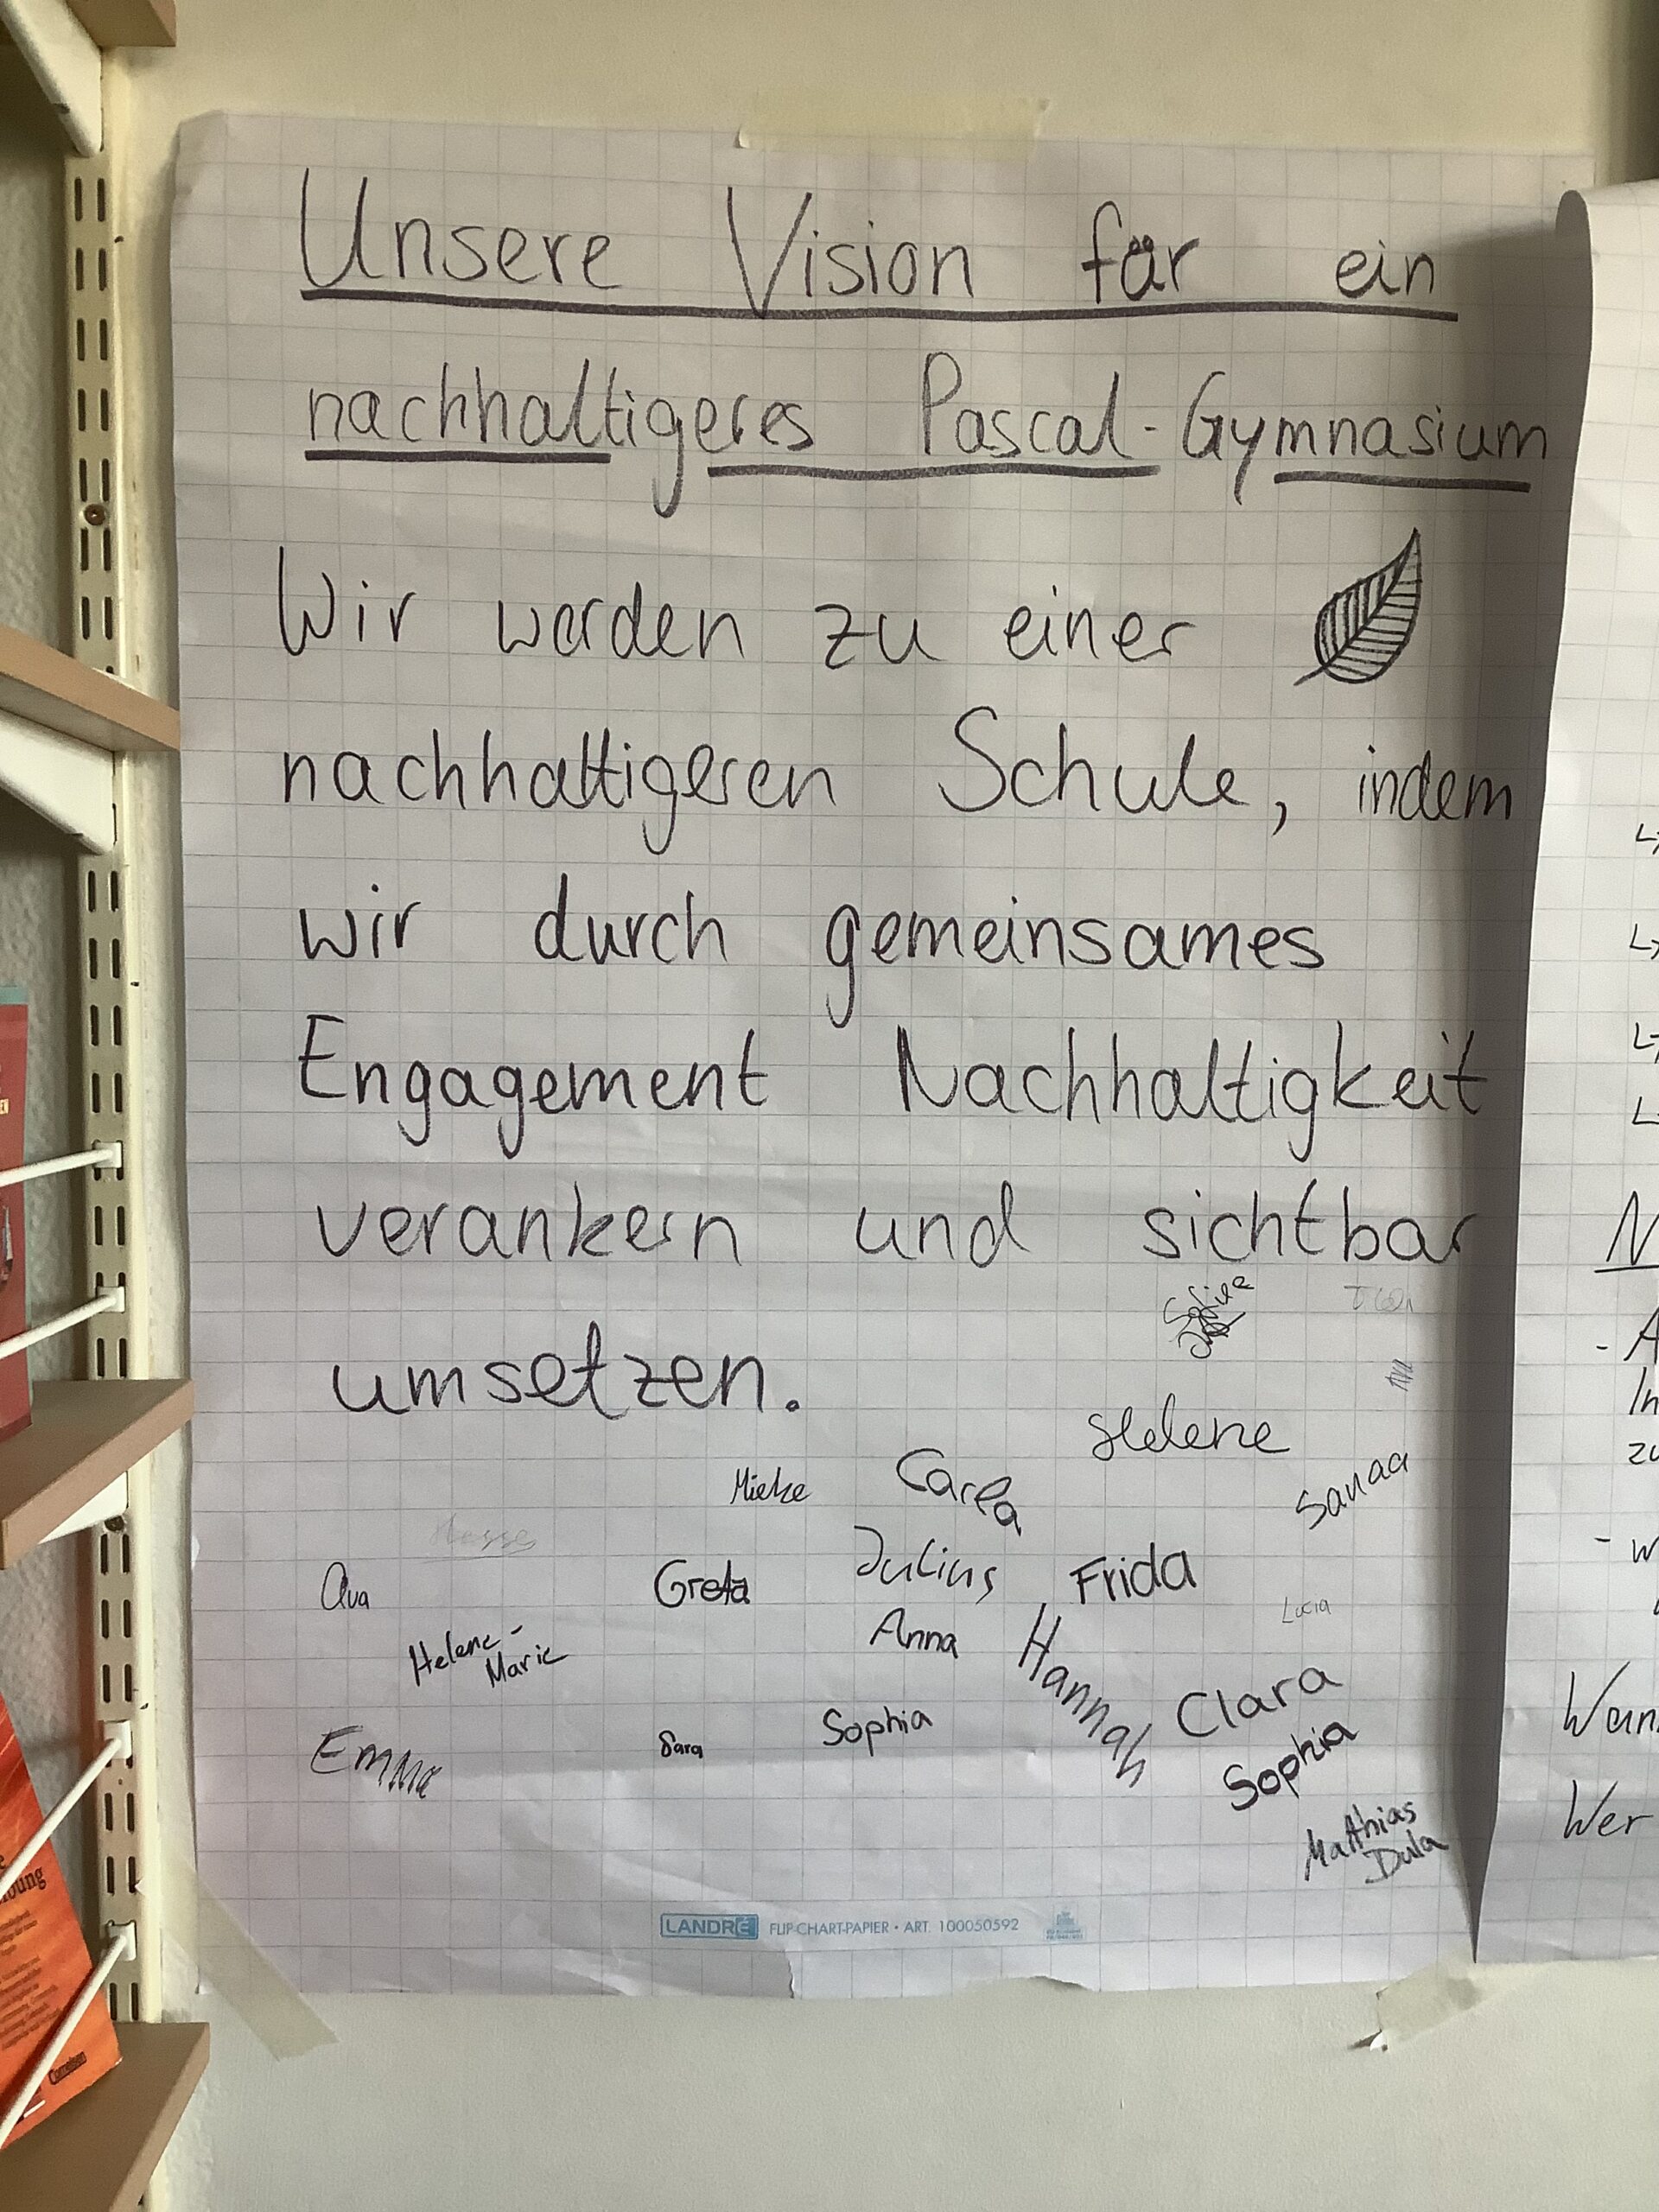 Unsere Vision für ein
nachhaltigeres Pascal-Gymnasium
Wir werden zu einer
nachhaltigeren Schule, indem
wir durch gemeinsames
Engagement Nachhaltigkeit
verankern und sichtbar
umsetzen.
Helene
Mieke
Carla
Sanaa
Ava
Greta
Julius
Frida
Lucia
Helene-
Marie
Anna
Hannah
Clara
Emma
Sara
Sophia
Sophia
Matthias
Dula
LANDRÉ FLIP-CHART-PAPIER • ART. 100050592
N
- A
In
zu
- w
Wann
Wer
Cornelsen